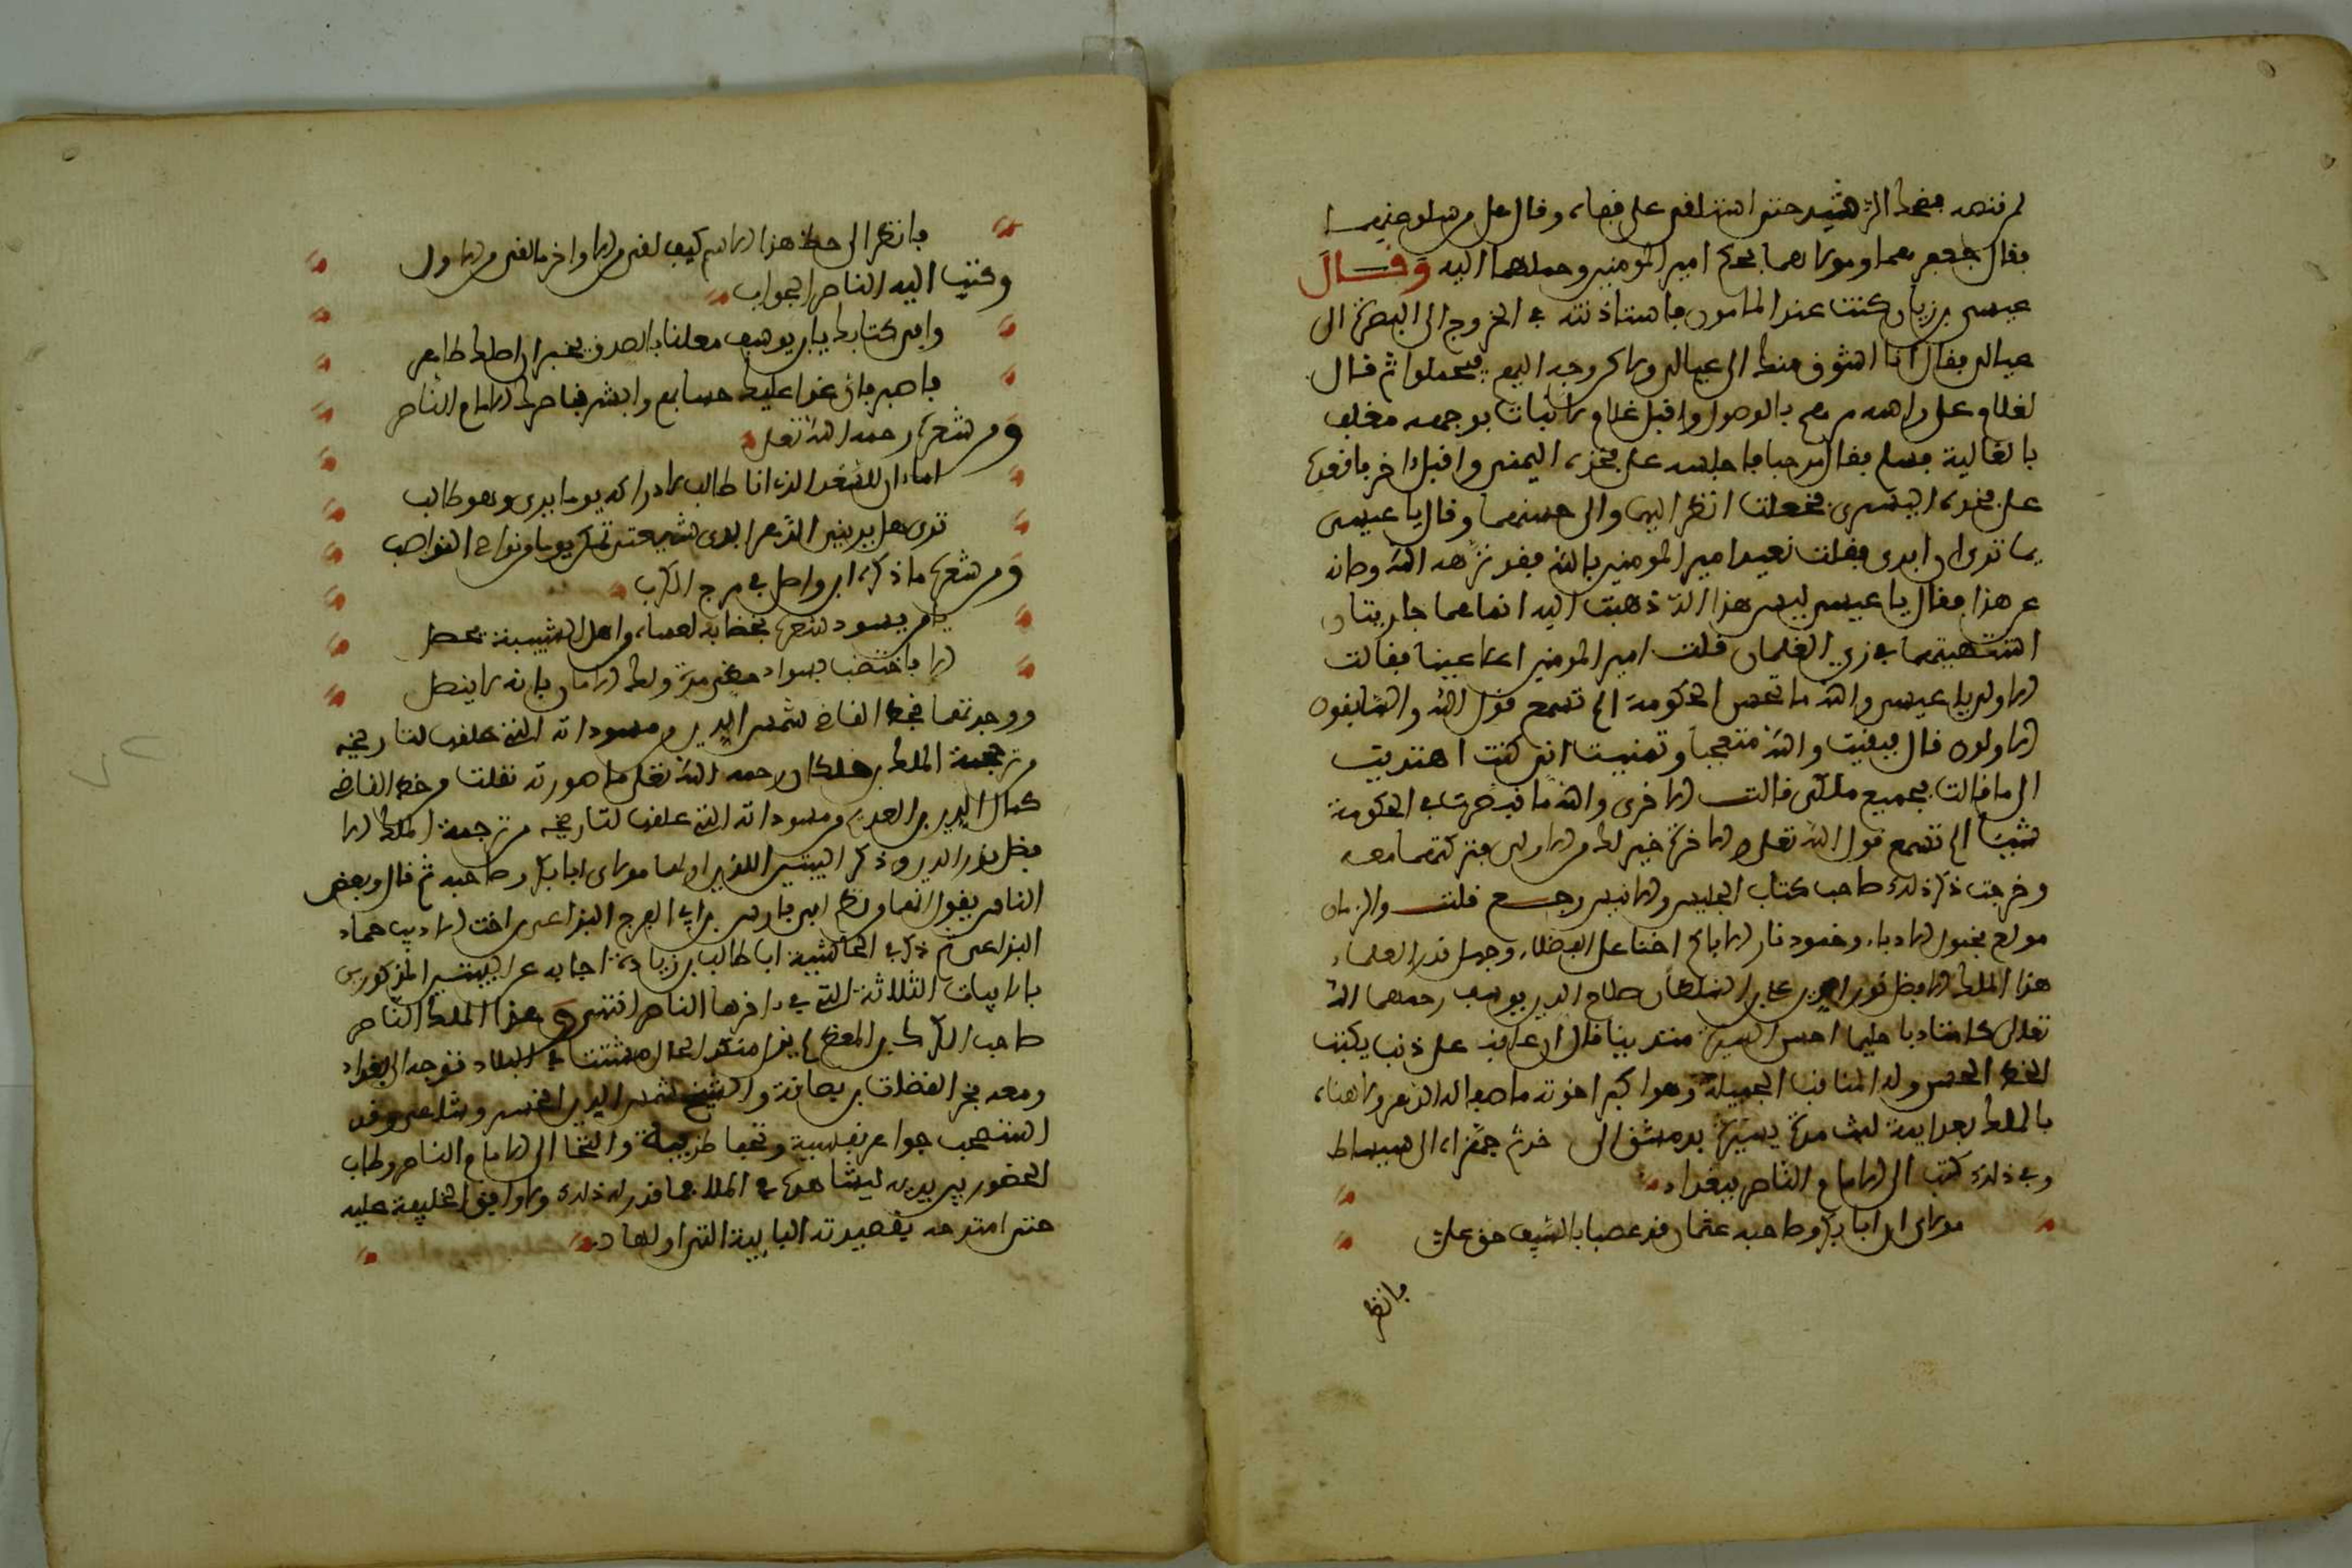 لم تنهه فضحك الرشيد حتى استلقى على قفاه وقال هل من سلو عنهما
فقال جعفر هما ومولاهما بحكم امير المومنين وحملهما اليه وقال
عيسى بن زيان كنت عند المامون فاستاذنته في الخروج الى البصرة الى
عيالي فقال انا اشوق منك الى عيالي ولاكن وجه اليهم فيحملوا ثم قال
لغلام على راسه مرهم بالوصول واقبل غلام لا نبات بوجهه مغلف
بالغالية فسلم فقال مرحبا فاجلسه على فخذه اليمنى واقبل اخر فاقعده
على فخذه اليسرى فجعلت انظر اليهما والى حسنهما وقال يا عيسى
بما ترى ان ابدى فقلت نعيذ امير المومنين بالله فقد نزهه الله وصانه
عن هذا فقال يا عيسى ليس هذا الذي ذهبت اليه انما هما جاريتان
استشهيتهما في زي الغلمان قلت امير المومنين اعلا عينا فقالت
الاولى يا عيسى والله ما تحسن الحكومة الم تسمع قول الله والسابقون
الاولون قال فبقيت والله متعجبا وتمنيت اني كنت اهتديت
الى ما قالت بجميع ملكي قالت الاخرى والله ما نبصرت في الحكومة
شيئا الم تسمع قول الله تعلى وللاخرة خير لك من الاولى فتركتهما معه
وخرجت ذكر ذلك صاحب كتاب الجليس والانيس رجع قلت والزمان
مولع بخمول الادباء وخمود نار الايام اخنا على الفضلاء وجهل قدر العلماء
هذا الملك الافضل نور الدين علي بن السلطان صلاح الدين يوسف رحمهما الله
تعلى كان متادبا حليما احسن السيرة متدينا قل ان عاقب على ذنب يكتب
الخط الحسن وله المناقب الجميلة وهو اكبر اخوته ما صفا له الدهر ولا هناه
بالملك بعد ابيه لبث مدة يسيرة بدمشق الى خدم حضراء الى سميساط
وفي ذلك كتب الى الامام الناصر ببغداد
مولاي ان ابا بكر وصاحبه عثمان قد غصبا بالسيف حق علي
فانظر
فانظر الى حظ هذا الاسم كيف لقي من الاواخر ما لقى من الاول
وكتب اليه الناصر الجواب
وافى كتابك يا ابن يوسف معلنا بالصدق يخبر ان اصلك طاهر
فاصبر فان غدا عليك حسابهم وابشر فناصرك الامام الناصر
ومن شعره رحمه الله تعلى
اما ان للسعد الذي انا طالب لادراكه يوما يرى وهو طالب
ترى هل يريني الدهر ايدي شيعتي تمكن يوما من نواصي النواصب
ومن شعره ما ذكره ابن واصل في مفرج الكرب
يا من يسود شعره بخضابه لعساه من اهل الشبيبة يحصل
ها فاختضب بسواد حظي مرة ولك الامان بانه لا ينصل
ووجدتهما بخط القاضي شمس الدين من مسوداته التي علقت لتاريخه
من ترجمة الملك بن خلكان رحمه الله تعلى ما صورته نقلت من خط القاضي
كمال الدين بن العديم من مسوداته التي علقت لتاريخه من ترجمة الملك الا
فضل نور الدين وذكر البيتين اللذين اولهما مولاي ابا بكر وصاحبه ثم قال وبعض
الناس يقول انهما من نظم ابن فارس بن ابي الفرج البزاعي بن اخت الاديب حماد
البزاعي ثم ذكر في الحاشية ابا طالب بن زيادة اجابه عن البيتين المذكورين
بالابيات الثلاثة التي في داخرها الناصر انتهى وهذا الملك الناصر
صاحب الكرك بن المعظم لم يزل منكد الحال مشتتا في البلاد فتوجه الى بغداد
ومعه فخر القضات بن بصاقة والشيخ شمس الدين الخسروشاهي وقد
استصحب جواهر نفيسة وتحفا طريفة والتجا الى الامام الناصر وطلب
الحضور بين يديه ليشاهده في الملا فما قدر له ذلك ولا وافق الخليفة عليه
حتى امتدحه بقصيدته البابية التي اولها